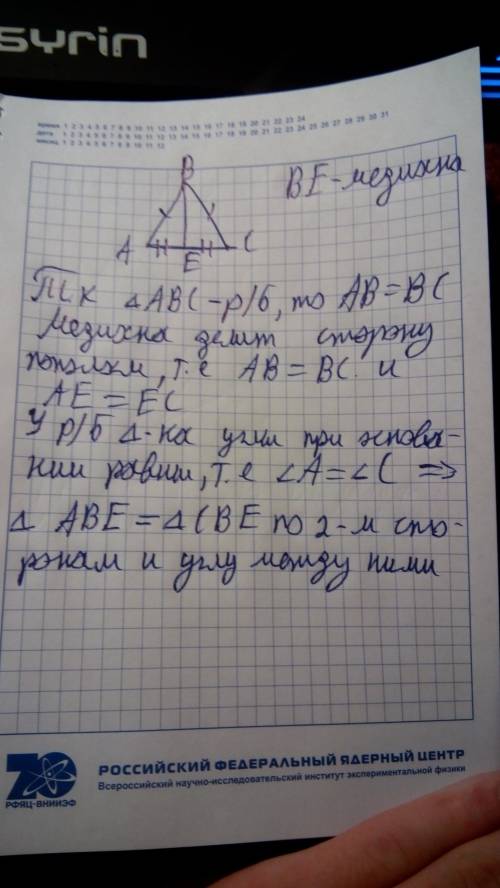 syrin
время 1 2 3 4 5 6 7 8 9 10 11 12 13 14 15 16 17 18 19 20 21 22 23 24
дата 1 2 3 4 5 6 7 8 9 10 11 12 13 14 15 16 17 18 19 20 21 22 23 24 25 26 27 28 29 30 31
месяц 1 2 3 4 5 6 7 8 9 10 11 12
B
BE-медиана
A E C
Т.к ΔABC-р/б, то AB=BC
Медиана делит сторону
пополам, т.е AB=BC и
AE=EC
У р/б Δ-ка углы при основа-
нии равны, т.е ∠A=∠C ⇒
Δ ABE=ΔCBE по 2-м сто-
ронам и углу между ними
70
РФЯЦ-ВНИИЭФ
РОССИЙСКИЙ ФЕДЕРАЛЬНЫЙ ЯДЕРНЫЙ ЦЕНТР
Всероссийский научно-исследовательский институт экспериментальной физики